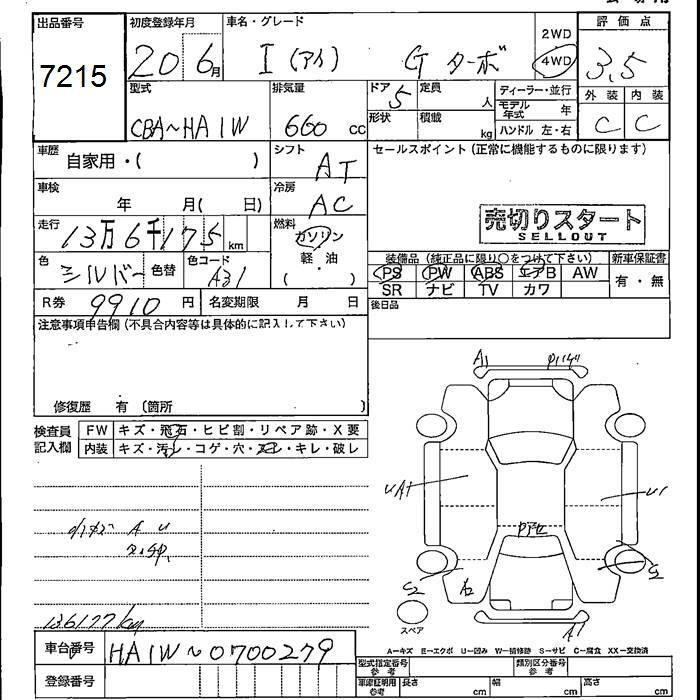 出品番号 初度登録年月 車名・グレード 評価点
7215 20 6月 I (アイ) G ターボ 2WD 4WD 3.5
型式 排気量 ドア 5 定員 人 ディーラー・並行 外装 内装
CBA~HA1W 660 cc 形状 積載 kg モデル年式 年 C C
ハンドル 左・右
車歴 自家用・( ) シフト AT セールスポイント(正常に機能するものに限ります)
車検 年 月( 日) 冷房 AC
売切りスタート
SELLOUT
走行 13万6千175km 燃料 ガソリン
軽・油
( )
色 シルバー 色替 色コード A31
装備品(純正品に限り○をつけて下さい) 新車保証書
PS PW ABS エアB AW 有・無
SR ナビ TV カワ
R券 9910 円 名変期限 月 日 後日品
注意事項申告欄(不具合内容等は具体的に記入して下さい)
修復歴 有(箇所 )
検査員記入欄 FW キズ・飛石・ヒビ割・リペア跡・X要
内装 キズ・汚レ・コゲ・穴・スレ・キレ・破レ
A1
UA1 U1
A U
S2 A2 S2
136177km
スペア A1
A=キズ E=エクボ U=凹み W=補修跡 S=サビ C=腐食 XX=交換済
車台番号 HA1W~0700279
登録番号
型式指定番号 参考 類別区分番号 参考
車庫証明用 参考 長さ cm 幅 cm 高さ cm